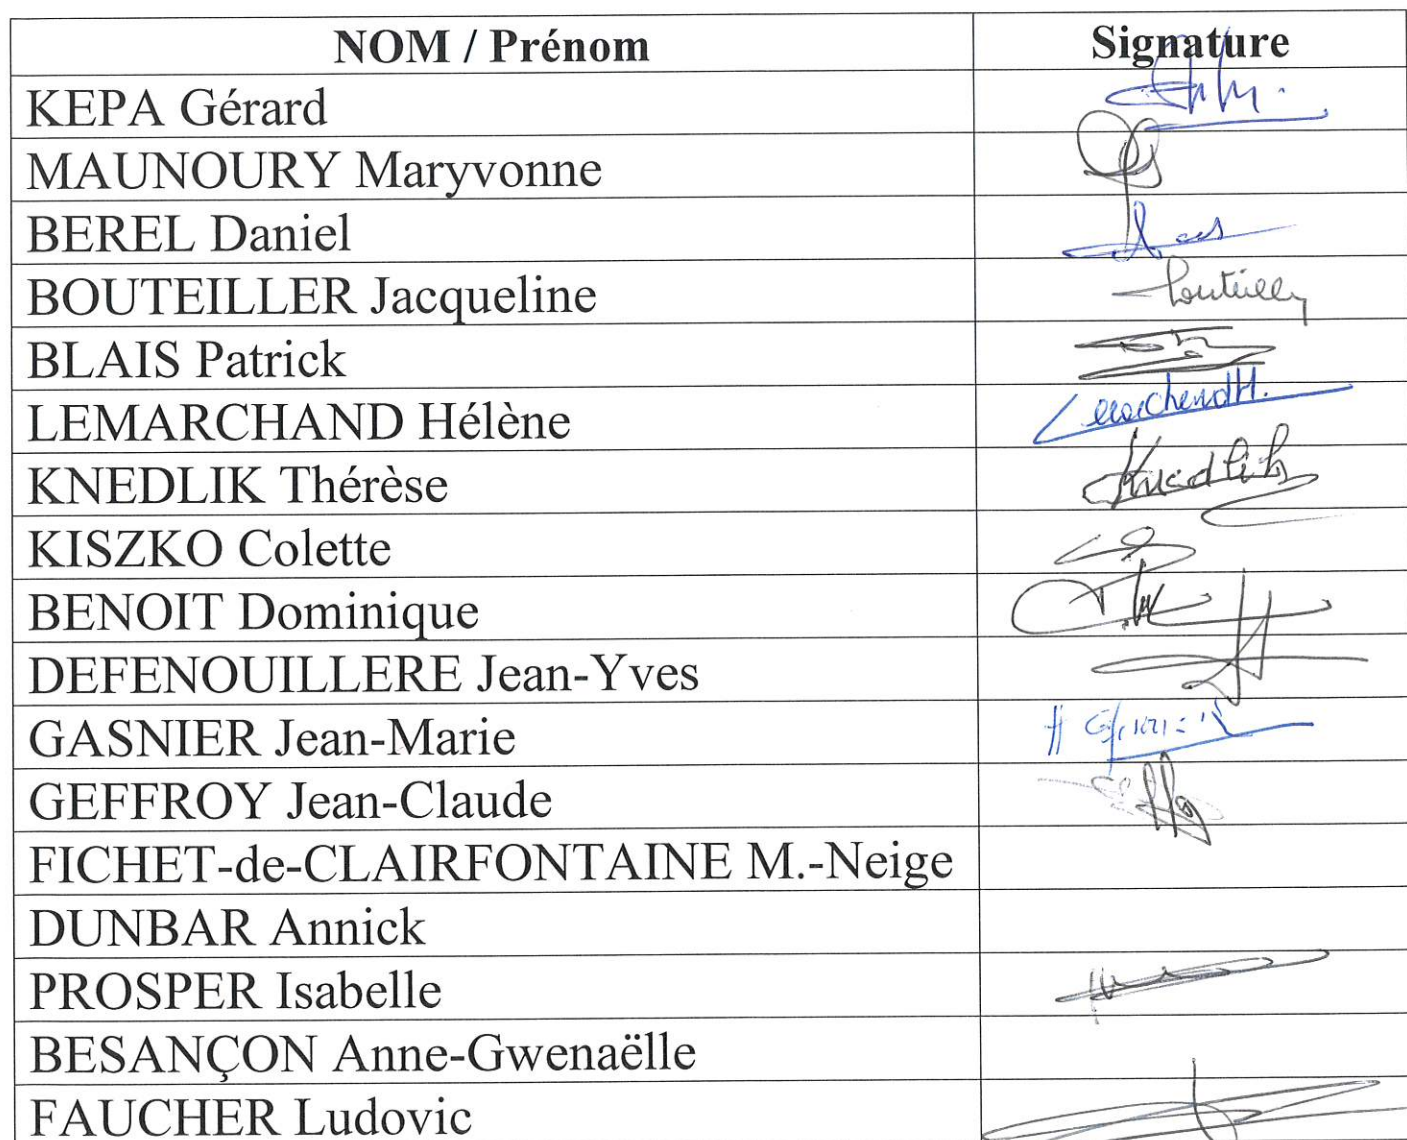 NOM / Prénom Signature
KEPA Gérard
MAUNOURY Maryvonne
BEREL Daniel
BOUTEILLER Jacqueline
BLAIS Patrick
LEMARCHAND Hélène
KNEDLIK Thérèse Knedlik
KISZKO Colette
BENOIT Dominique
DEFENOUILLERE Jean-Yves
GASNIER Jean-Marie
GEFFROY Jean-Claude
FICHET-de-CLAIRFONTAINE M.-Neige
DUNBAR Annick
PROSPER Isabelle
BESANÇON Anne-Gwenaëlle
FAUCHER Ludovic